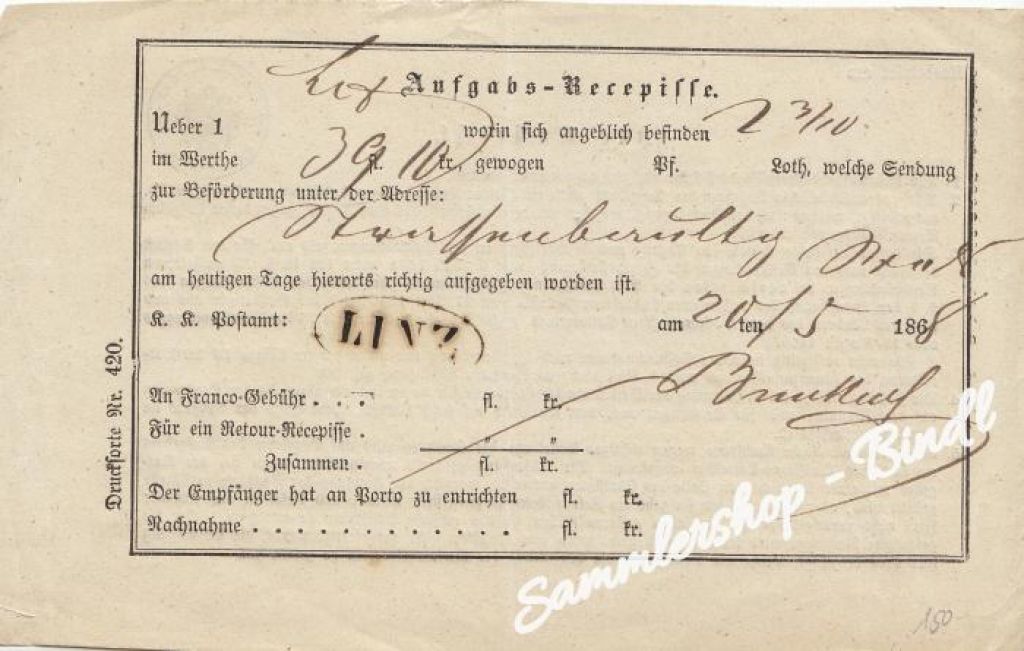 Aufgabs-Recepisse.
Ueber 1 worin sich angeblich befinden 2 3/10.
im Werthe 39 fl. 10 kr. gewogen Pf. Loth, welche Sendung
zur Beförderung unter der Adresse:
am heutigen Tage hierorts richtig aufgegeben worden ist.
K. K. Postamt: LINZ am 20ten/5 1868
An Franco-Gebühr . . . fl. kr.
Für ein Retour-Recepisse . " "
Zusammen . fl. kr.
Der Empfänger hat an Porto zu entrichten fl. kr.
Nachnahme . . . . . . . . . . . . fl. kr.
Drucksorte Nr. 420.
Sammlershop - Bindl
150